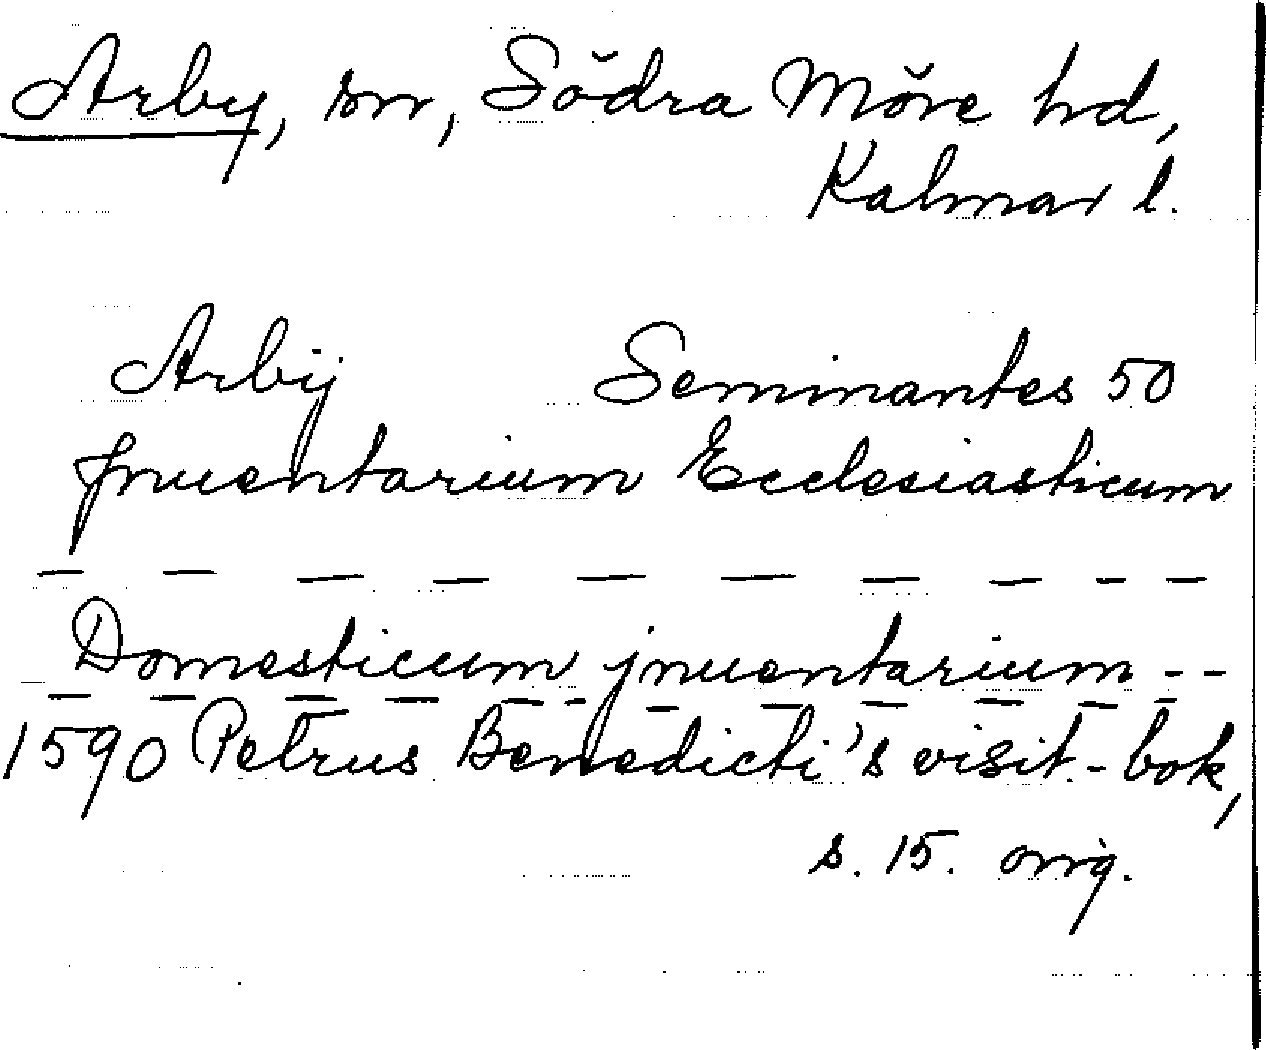 Arby, sn, Södra Möre hd,
Kalmar l.
Arbÿ Seminantes 50
Jnuentarium Ecclesiasticum
— — — — — — — — — —
Domesticum jnuentarium --
— — — — — - — — — — -
1590 Petrus Benedicti's visit.-bok,
s. 15. orig.